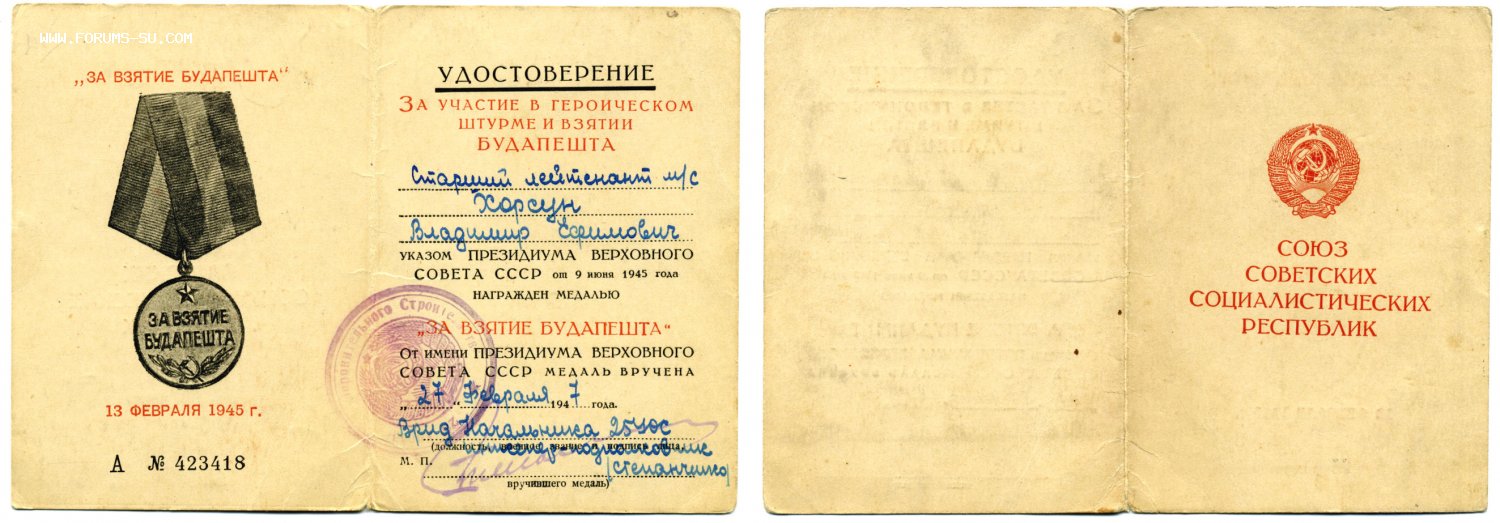 WWW.FORUMS-SU.COM
„ЗА ВЗЯТИЕ БУДАПЕШТА“
ЗА ВЗЯТИЕ
БУДАПЕШТА
13 ФЕВРАЛЯ 1945 г.
А № 423418
УДОСТОВЕРЕНИЕ
ЗА УЧАСТИЕ В ГЕРОИЧЕСКОМ
ШТУРМЕ И ВЗЯТИИ
БУДАПЕШТА
Старший лейтенант м/с
Хорсун
Владимир Ефимович
УКАЗОМ ПРЕЗИДИУМА ВЕРХОВНОГО
СОВЕТА СССР от 9 июня 1945 года
НАГРАЖДЕН МЕДАЛЬЮ
„ЗА ВЗЯТИЕ БУДАПЕШТА“
ОТ ИМЕНИ ПРЕЗИДИУМА ВЕРХОВНОГО
СОВЕТА СССР МЕДАЛЬ ВРУЧЕНА
„27“ Февраля 1947 года.
Врид Начальника
(должность, военное звание и подпись лица,
инженер-подполковник
М. П.
/Степанченко/
вручившего медаль)
СОЮЗ
СОВЕТСКИХ
СОЦИАЛИСТИЧЕСКИХ
РЕСПУБЛИК